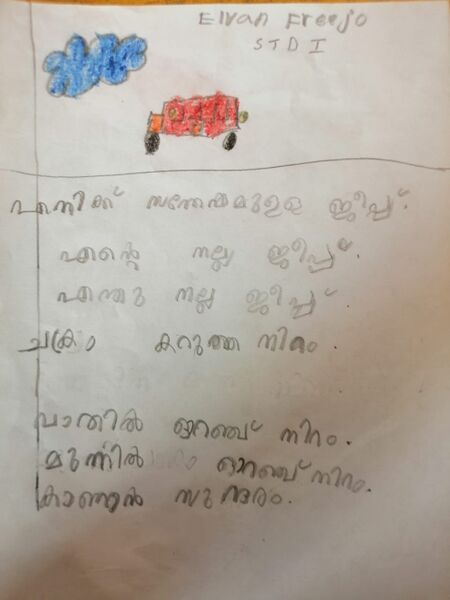 Elvan Freejo
STD I
എനിക്ക് സന്തോഷമുള്ള ജീപ്പ്.
എന്റെ നല്ല ജീപ്പ്.
എന്തു നല്ല ജീപ്പ്.
ചക്രം കറുത്ത നിറം
വാതിൽ ഓറഞ്ച് നിറം.
മുന്നിൽ ഓറഞ്ച് നിറം.
കാണാൻ സുന്ദരം.